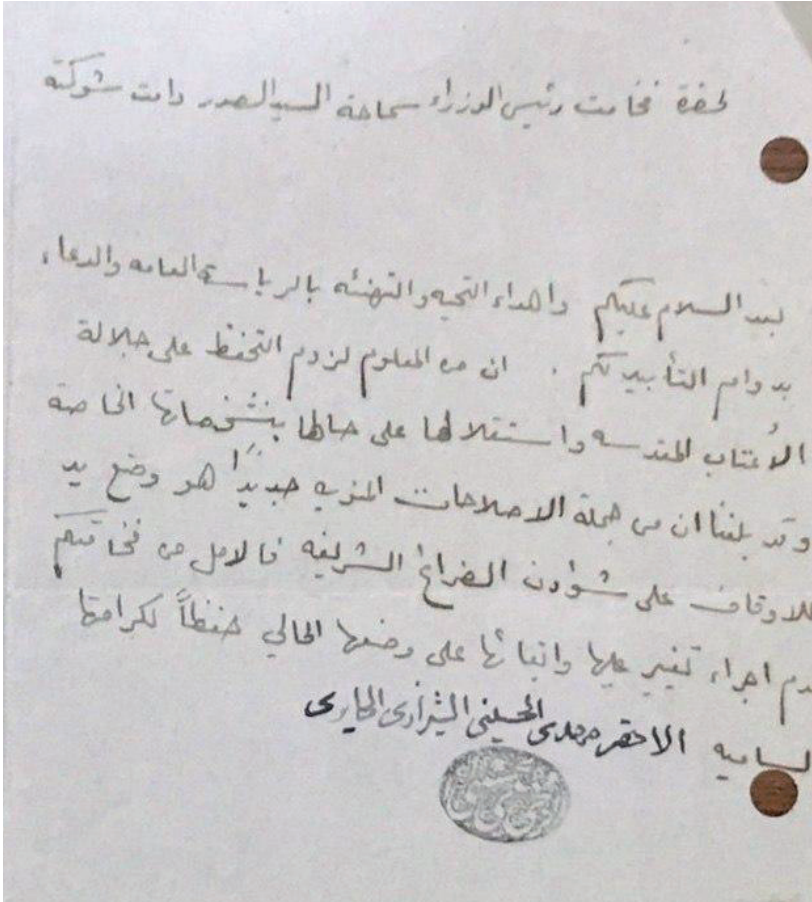 لحضرة فخامت رئيس الوزراء سماحة السيد الصدر دامت شوكته
بعد السلام عليكم واهداء التحيه والتهنئه بالرياسة العامه والدعاء
بدوام التأييد لكم . ان من المعلوم لزوم التحفظ على جلالة
الأعتاب المقدسه واستقلالها على حالها بمشخصاتها الخاصة
وقد بلغنا ان من جملة الاصلاحات المنويه جديدًا هو وضع يد
للاوقاف على شؤون الضرائح الشريفه فالامل من فخامتكم
دم اجراء تغيير عليها وابقائها على وضعها الحالي حفظاً لكرامتها
لساميه الاحقر مهدى الحسيني الشيرازى الحايرى